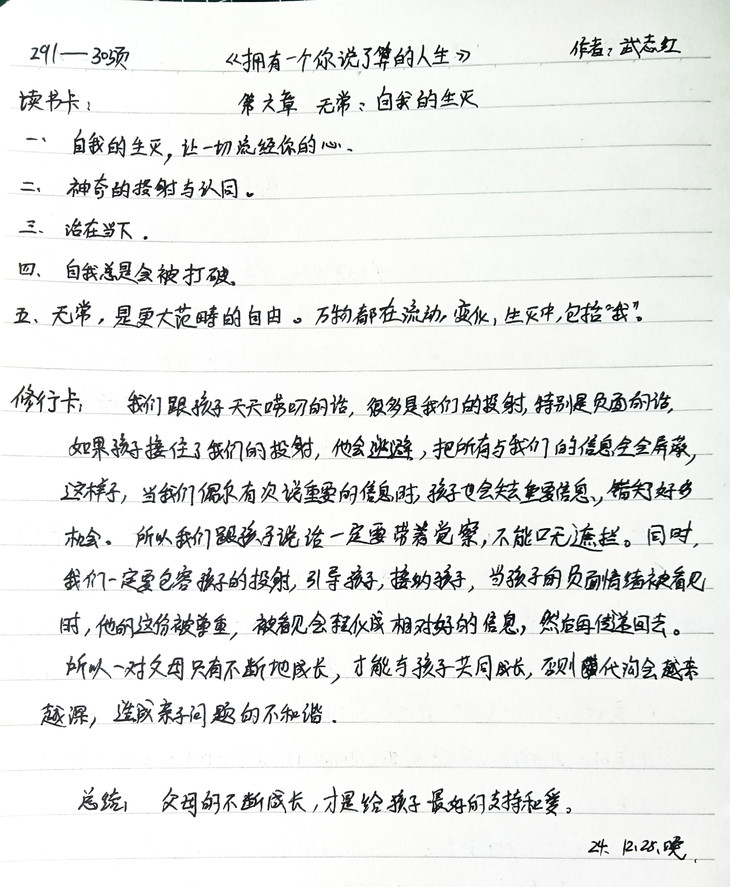 291——303页 《拥有一个你说了算的人生》 作者：武志红
读书卡： 第六章 无常：自我的生灭
一、自我的生灭，让一切流经你的心、
二、神奇的投射与认同。
三、活在当下．
四、自我总是会被打破。
五、无常，是更大范畴的自由。万物都在流动，变化，生灭中，包括“我”。
修行卡： 我们跟孩子天天唠叨的话，很多是我们的投射，特别是负面的话，
如果孩子接住了我们的投射，他会逃避，把所有与我们的信息全屏蔽，
这样子，当我们偶尔有次说重要的信息时，孩子也会失去重要信息，错失好多
机会。所以我们跟孩子说话一定要带着觉察，不能口无遮拦。同时，
我们一定要包容孩子的投射，引导孩子，接纳孩子，当孩子的负面情绪被看见
时，他的这份被尊重，被看见会转化成相对好的信息，然后再传递回去。
所以一对父母只有不断地成长，才能与孩子共同成长，否则代沟会越来
越深，造成亲子问题的不和谐．
总结： 父母的不断成长，才是给孩子最好的支持和爱。
24. 12.25.晚．